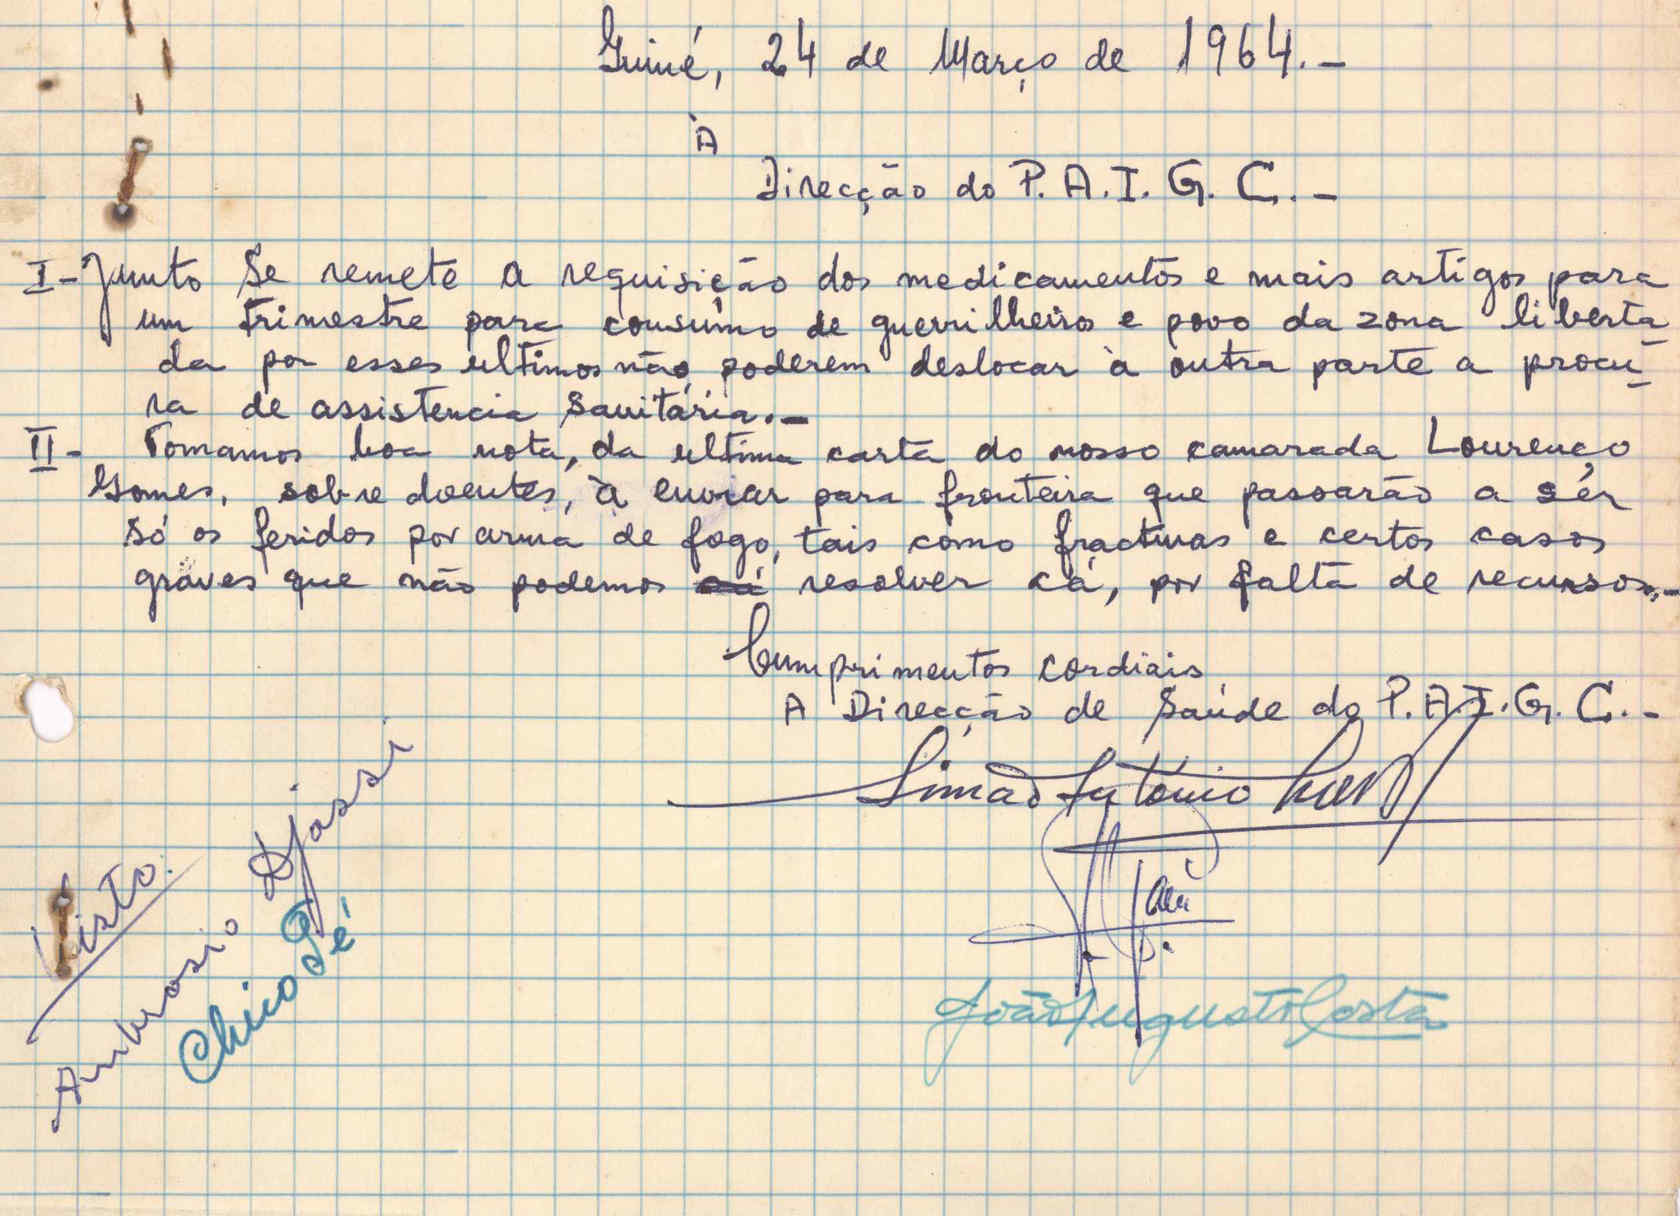 Guiné, 24 de Março de 1964.-
À
Direcção do P.A.I.G.C.-
I- Junto Se remete a requisição dos medicamentos e mais artigos para
um trimestre para consumo de guerrilheiros e povo da zona liberta
da por esses ultimos não poderem deslocar à outra parte a procu-
ra de assistencia Sanitária.-
II- Tomamos boa nota, da ultima carta do nosso camarada Lourenço
Gomes, sobre doentes, à enviar para fronteira que passarão a sér
só os feridos por arma de fogo, tais como fracturas e certos casos
graves que não podemos resolver cá, por falta de recursos.-
Cumprimentos cordiais
A Direcção de Saúde do P.A.I.G.C.-
Simão António
João Augusto Costa
Visto:
Ambrosio Djassi
Chico Té